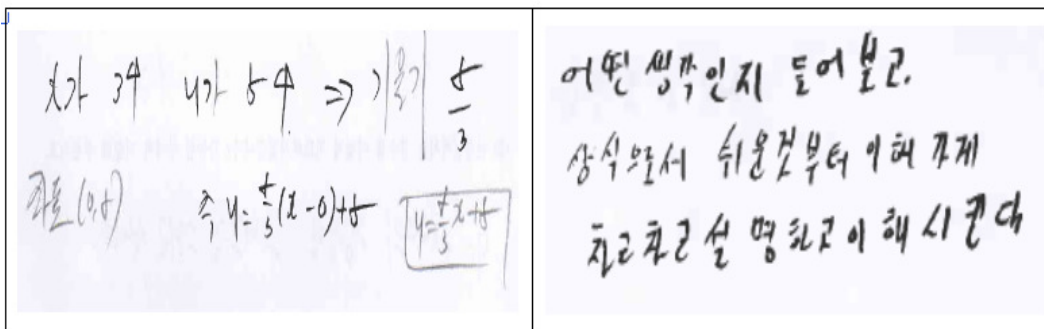 x가 3일 때 y가 5일 때 ⇒ 기울기 5/3
좌표 (0,5) ⇒ y=5/3(x-0)+5 y=5/3x+5
어떤 생각인지 들어보고,
상식으로서 쉬운것부터 이해 가게
차근차근 설명하고 이해시킨다